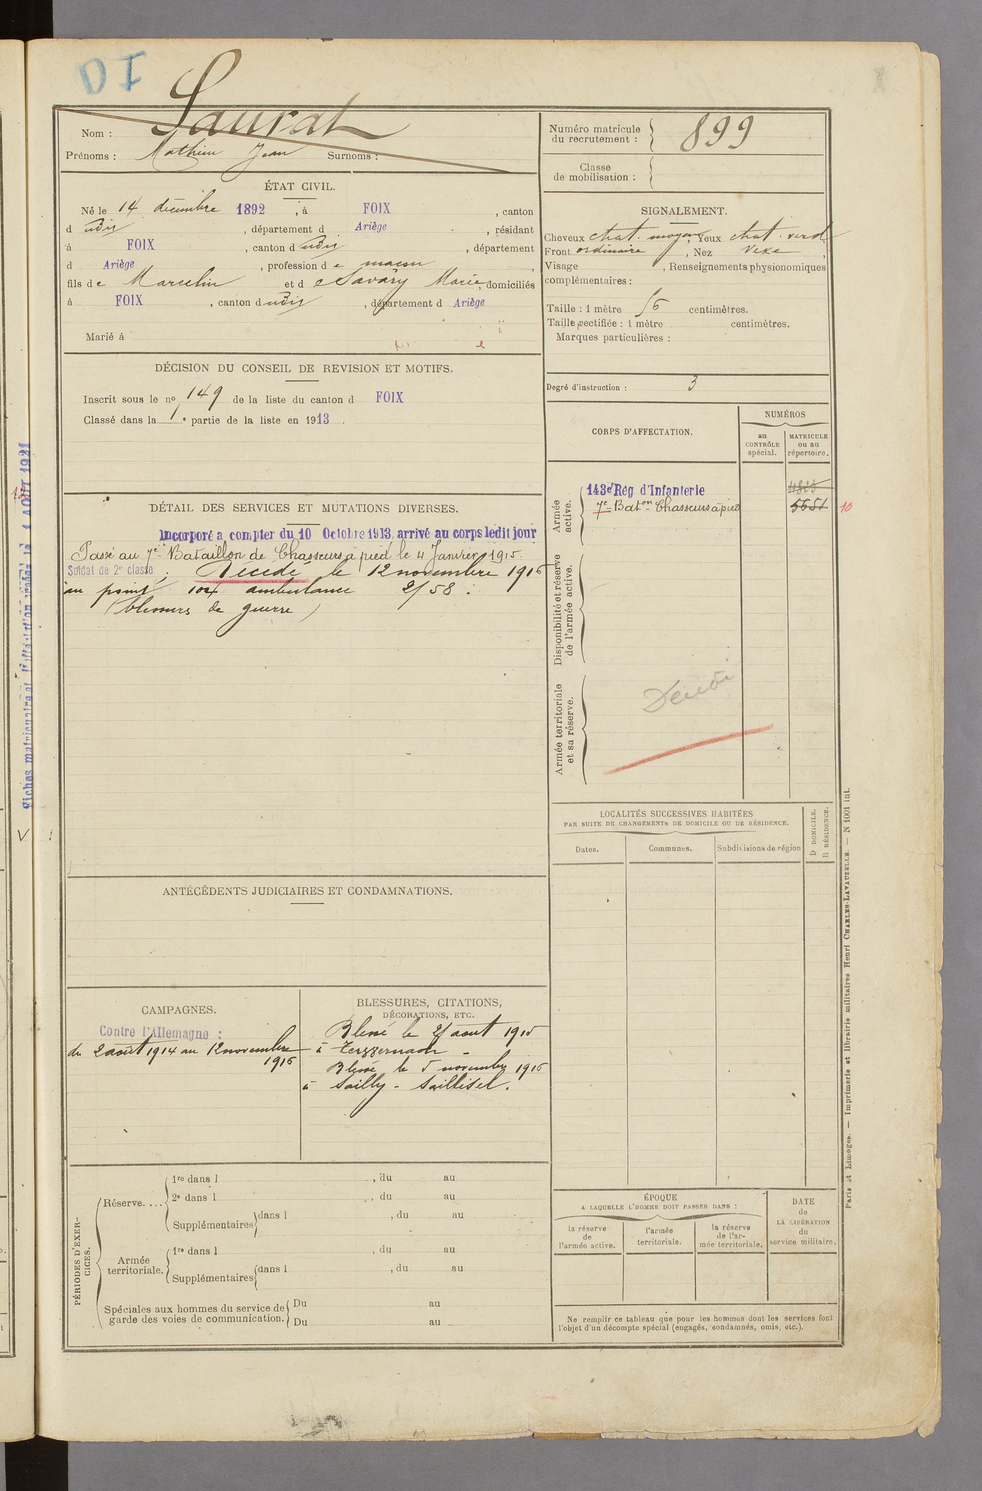 DI
Nom : Saurat
Prénoms : Mathieu Jean Surnoms :
Numéro matricule du recrutement : 899
Classe de mobilisation :
ÉTAT CIVIL.
Né le 14 décembre 1892, à FOIX, canton
d udis, département d Ariège, résidant
à FOIX, canton d udis, département
d Ariège, profession d e maçon
fils de Marcelin et d e Savary Marie, domiciliés
à FOIX, canton d udis, département d Ariège
Marié à
SIGNALEMENT.
Cheveux chat. moyens, Yeux chat. verd
Front ordinaire, Nez Vexe,
Visage , Renseignements physionomiques
complémentaires :
Taille : 1 mètre 56 centimètres.
Taille rectifiée : 1 mètre centimètres.
Marques particulières :
Degré d'instruction : 3
DÉCISION DU CONSEIL DE REVISION ET MOTIFS.
Inscrit sous le no 149 de la liste du canton d FOIX
Classé dans la 1e partie de la liste en 1913.
CORPS D'AFFECTATION.
NUMÉROS
au CONTRÔLE spécial.
MATRICULE ou au répertoire.
Armée active.
143e Rég d'Infanterie
7e Baton Chasseurs à pied 5651 10
Disponibilité et réserve de l'armée active.
Armée territoriale et sa réserve.
DÉTAIL DES SERVICES ET MUTATIONS DIVERSES.
Incorporé a compter du 10 Octobre 1913, arrivé au corps ledit jour
Passé au 7e Bataillon de Chasseurs à pied le 4 Janvier 1915.
Soldat de 2e classe. Décédé le 12 novembre 1916
au point 104 ambulance 2/58.
(blessures de guerre)
LOCALITÉS SUCCESSIVES HABITÉES
PAR SUITE DE CHANGEMENTS DE DOMICILE OU DE RÉSIDENCE.
Dates. Communes. Subdivisions de région
D DOMICILE.
R RÉSIDENCE.
ANTÉCÉDENTS JUDICIAIRES ET CONDAMNATIONS.
CAMPAGNES.
Contre l'Allemagne :
du 2 août 1914 au 12 novembre
1916
BLESSURES, CITATIONS,
DÉCORATIONS, ETC.
Blessé le 21 août 1915
à
Blessé le 5 novembre 1916
à Sailly-Saillisel.
PÉRIODES D'EXERCICES.
Réserve....
1re dans l , du au
2e dans l , du au
Supplémentaires dans l , du au
Armée territoriale.
1re dans l , du au
Supplémentaires dans l , du au
Spéciales aux hommes du service de garde des voies de communication.
Du au
Du au
ÉPOQUE
A LAQUELLE L'HOMME DOIT PASSER DANS :
la réserve de l'armée active.
l'armée territoriale.
la réserve de l'armée territoriale.
DATE de LA LIBÉRATION du service militaire.
Ne remplir ce tableau que pour les hommes dont les services font
l'objet d'un décompte spécial (engagés, condamnés, omis, etc.).
Paris et Limoges. — Imprimerie et librairie militaires Henri CHARLES-LAVAUZELLE. — N 1001 int.